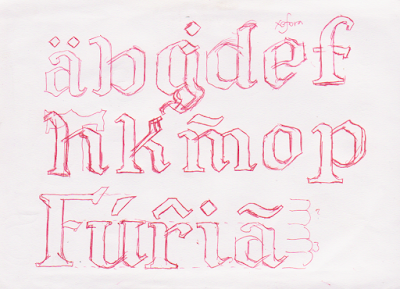 äbġdef
ħkm̃op
Fúr̂iã